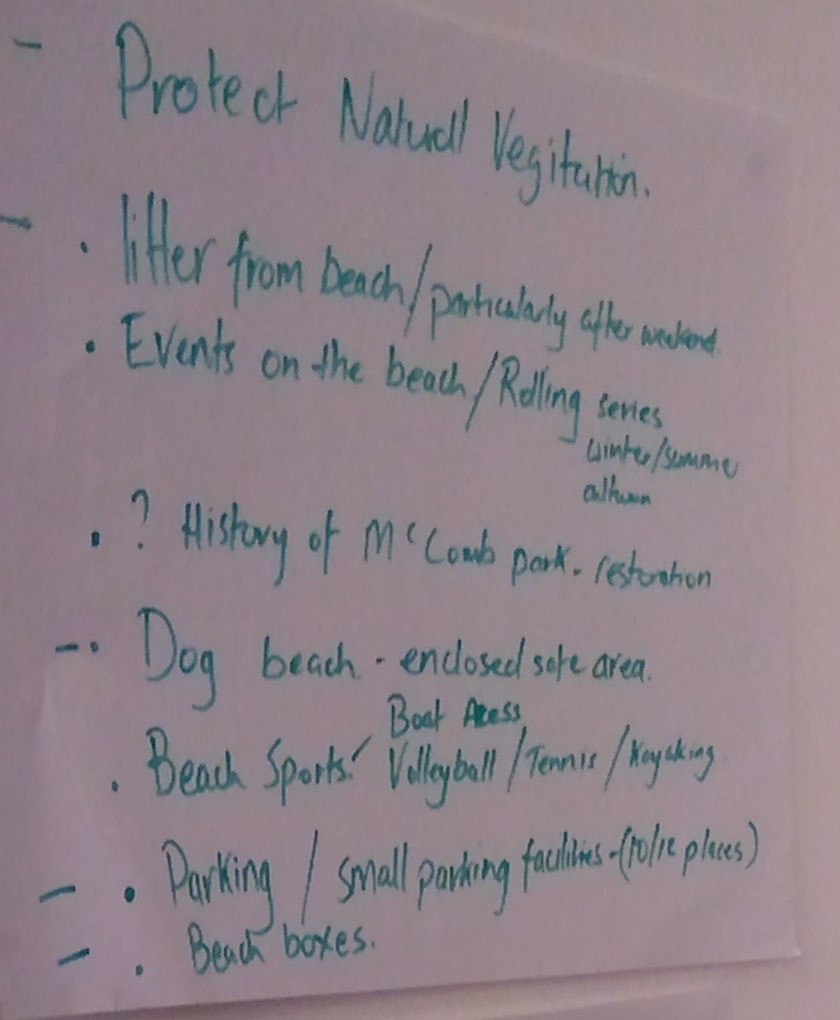 - Protect Naturall Vegitation.
- · litter from beach/particularly after weekend.
· Events on the beach/Rolling series
winter/summe
altumn
· ? History of McComb park. restoration
-· Dog beach - enclosed safe area.
Boat Acess
· Beach Sports! Volleyball/Tennis/Kayaking
- · Parking / small parking facilities-(10/12 places)
- · Beach boxes.